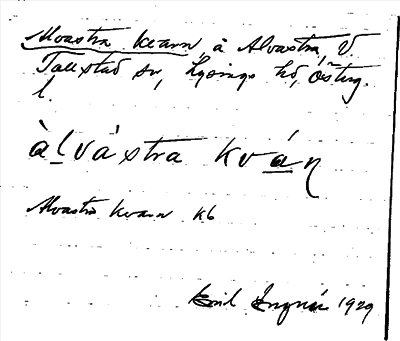 Alvastra kvarn, å Alvastra, V.
Tollstad sn, Lysings hd, Österg.
l.
àlvástra kván
Alvastra kvarn kb
Emil Ingvar 1929